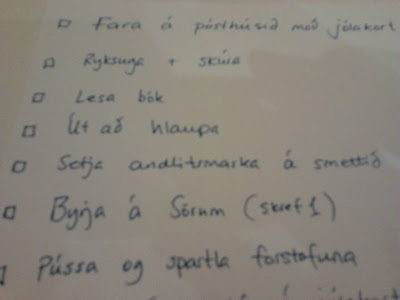 Fara á pósthúsið með jólakort
Ryksuga + skúra
Lesa bók
Út að hlaupa
Setja andlitsmaska á smettið
Byrja á Sörum (skref 1)
Pússa og spartla forstofuna